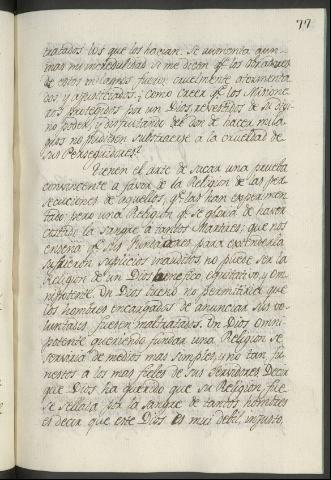 77
tratados los que los hacian. Se aumenta aun
mas mi incredulidad si me dicen qe. los obradores
de estos milagros fueron cruelmente atormenta
dos y ajusticiados; como creer qe. los Misione
ros protegidos por un Dios, revestidos de su divi
no poder, y disfrutando del don de hacer mila
gros no pudiesen substraerse a la crueldad de
sus Perseguidores?
Tienen el arte de sacar una prueba
convincente a favor de la Religion de las per
secuciones de aquellos, qe. las han experimen
tado; pero una Religion qe. se gloria de haver
costado la sangre a tantos Martires, que nos
enseña qe. sus fundadores para extenderla
sufrieron suplicios inauditos no puede ser la
Religion de un Dios benefico, equitativo, y om
nipotente. Un Dios bueno no permitiria que
los hombres encargados de anunciar sus vo
luntades, fuesen maltratados. Un Dios omni
potente queriendo fundar una Religion se
serviria de medios mas simples, y no tan fu
nestos a los mas fieles de sus Servidores. Decir
que Dios ha querido que su Religion fue
se sellada por la sangre de tantos hombres
es decir que este Dios es mui debil, injusto,